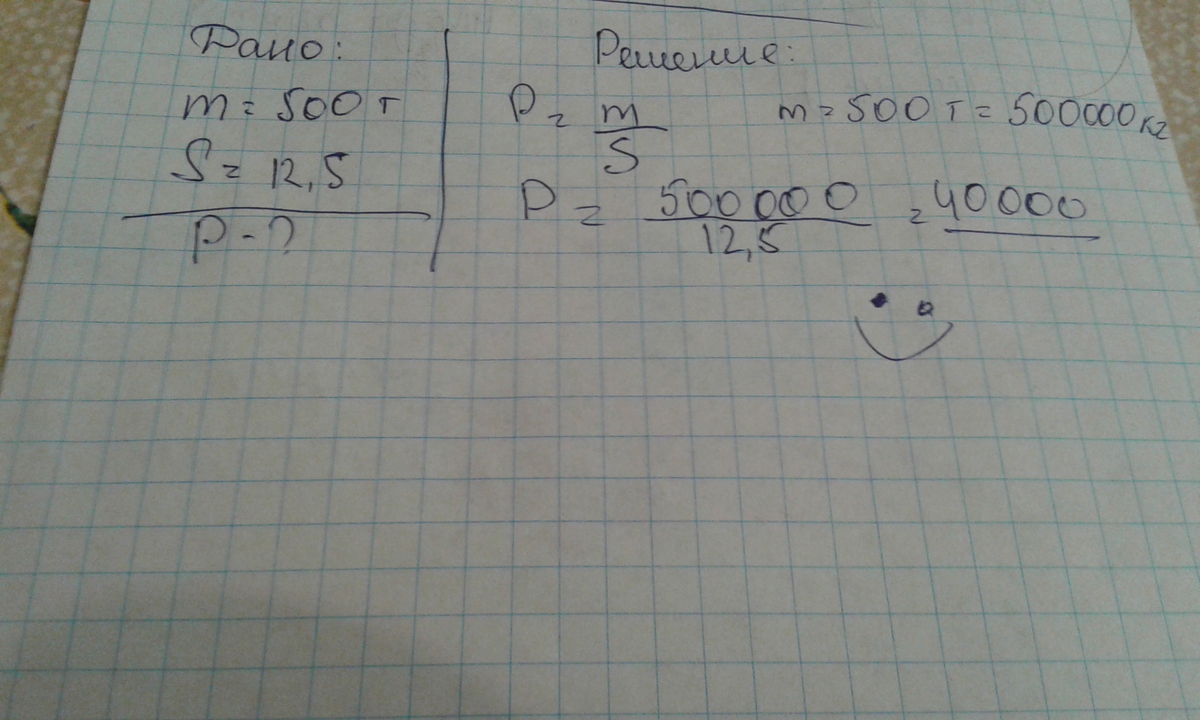 Дано:
m = 500 т
S = 12,5
P - ?
Решение:
P = m/S m = 500 т = 500000 кг
P = 500000/12,5 = 40000